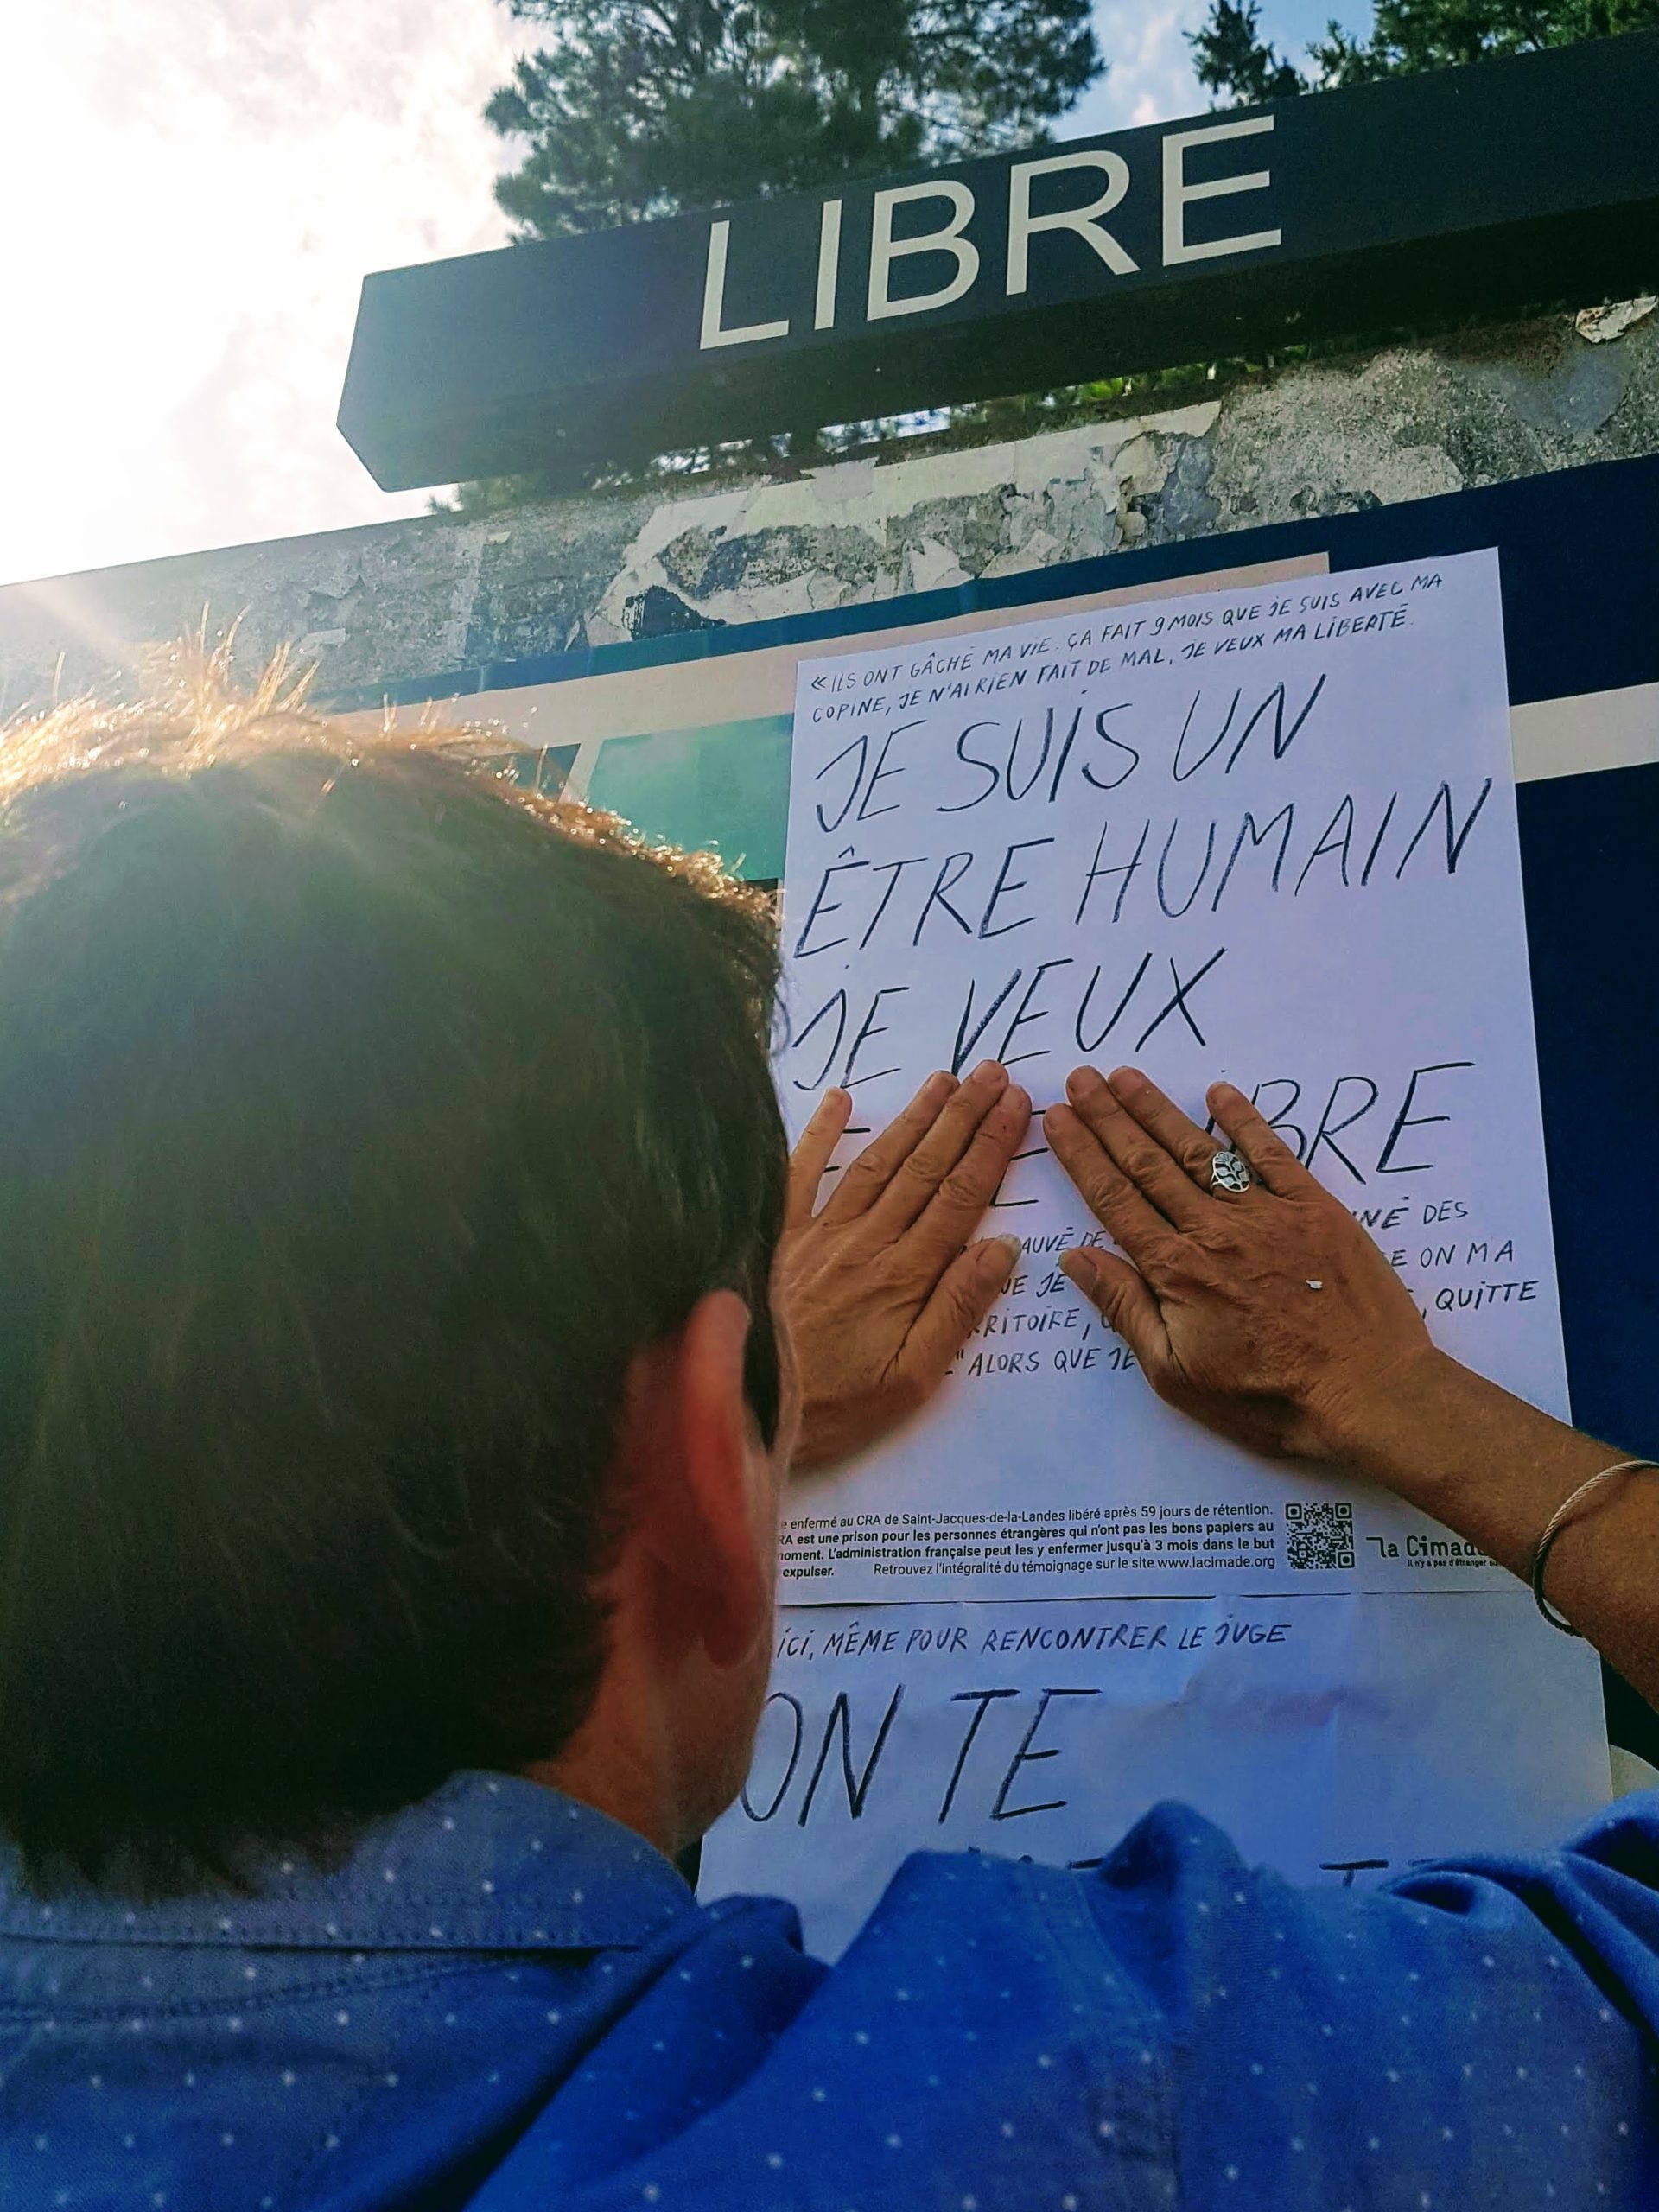 LIBRE
«ILS ONT GÂCHÉ MA VIE. ÇA FAIT 9 MOIS QUE JE SUIS AVEC MA
COPINE, JE N'AI RIEN FAIT DE MAL, JE VEUX MA LIBERTÉ.
JE SUIS UN
ÊTRE HUMAIN
JE VEUX
BRE
DES
JE ON M A
RITOIRE, , QUITTE
" ALORS QUE JE
enfermé au CRA de Saint-Jacques-de-la-Landes libéré après 59 jours de rétention.
RA est une prison pour les personnes étrangères qui n'ont pas les bons papiers au
moment. L'administration française peut les y enfermer jusqu'à 3 mois dans le but
expulser. Retrouvez l'intégralité du témoignage sur le site www.lacimade.org
la Cimade
Il n'y a pas d'étranger
ICI, MÊME POUR RENCONTRER LE JUGE
ON TE